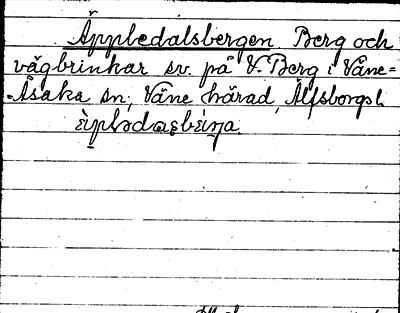 Äppledalsbergen Berg och
vägbrinkar sv. på V. Berg i Väne=
-Åsaka sn, Väne härad, Älfsborgs l.